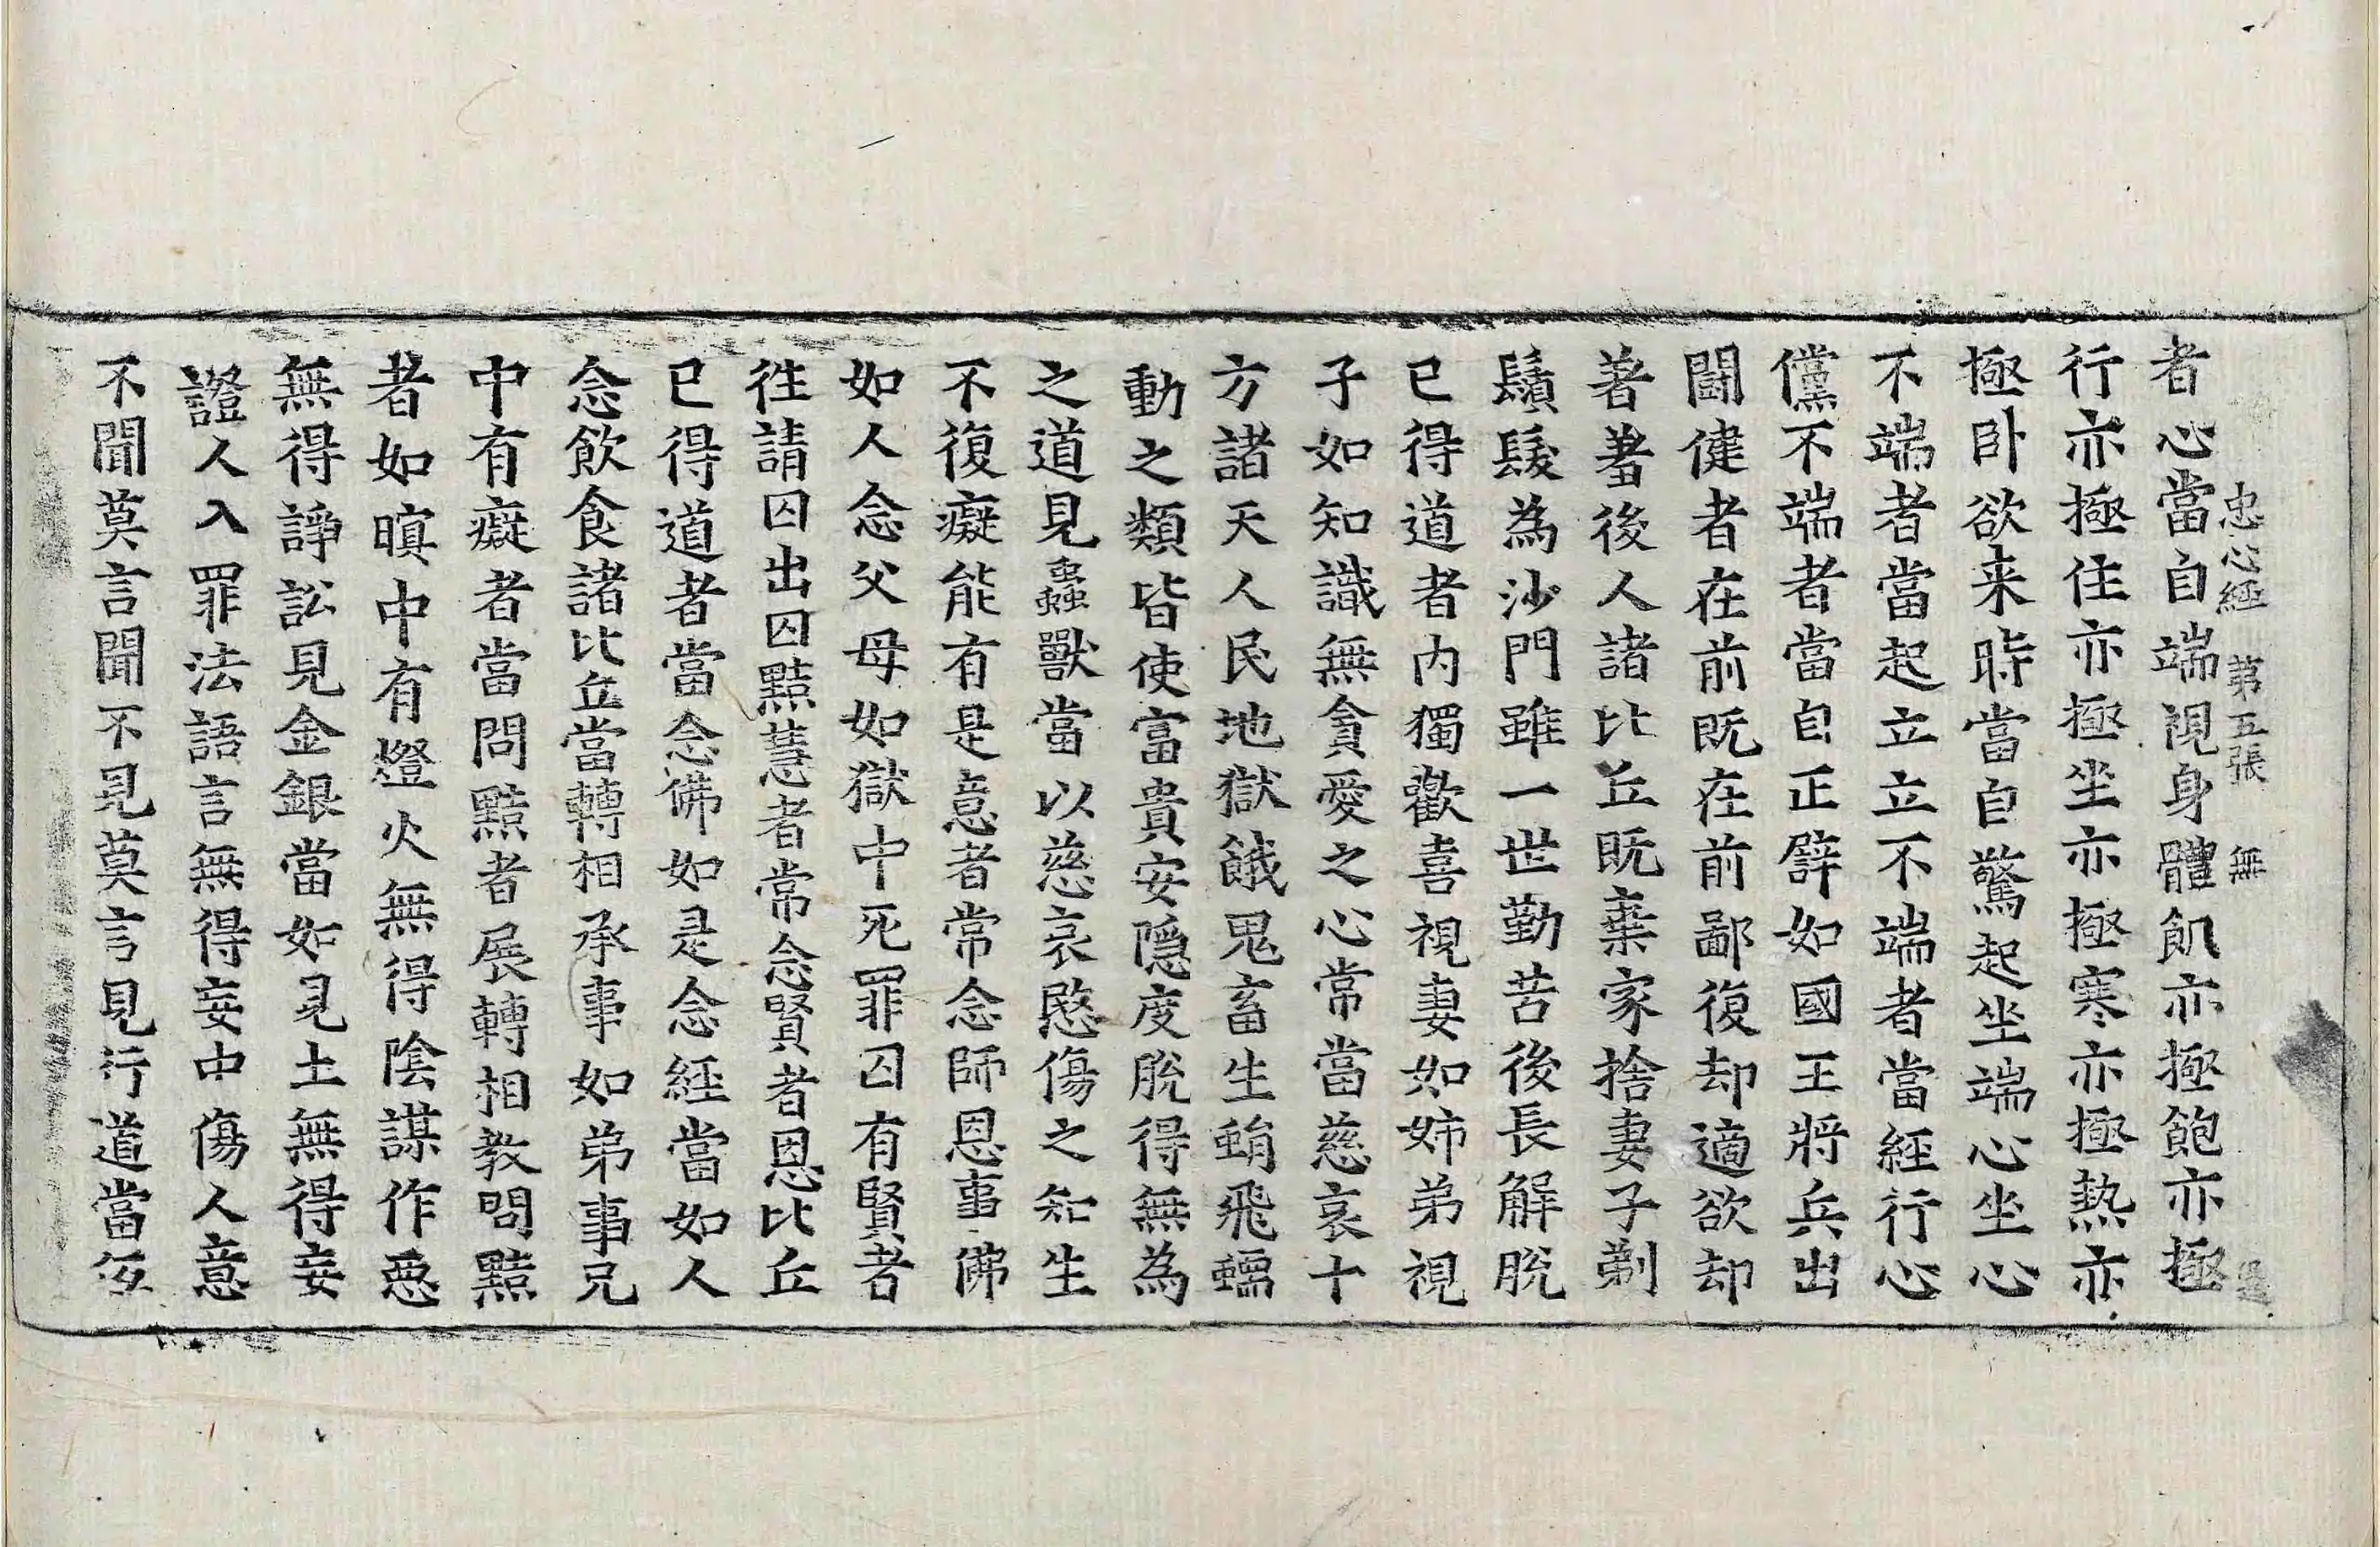 忠心經 第五張 無
者心當自端視身體飢亦極飽亦極
行亦極住亦極坐亦極寒亦極熱亦
極臥欲来時當自驚起坐端心坐心
不端者當起立立不端者當經行心
儻不端者當自正譬如國王將兵出
鬪健者在前既在前鄙復却適欲却
著羞後人諸比丘既棄家捨妻子剃
鬚髮為沙門雖一世勤苦後長解脫
已得道者内獨歡喜視妻如姉弟視
子如知識無貪愛之心常當慈哀十
方諸天人民地獄餓鬼畜生蜎飛蠕
動之類皆使富貴安隱度脫得無為
之道見蟲獸當以慈哀愍傷之知生
不復癡能有是意者常念師恩事佛
如人念父母如獄中死罪囚有賢者
徃請囚出囚黠慧者常念賢者恩比丘
已得道者當念佛如是念經當如人
念飲食諸比丘當轉相承事如弟事兄
中有癡者當問黠者展轉相教問黠
者如暝中有燈火無得陰謀作惡
無得諍訟見金銀當如見土無得妄
證人入罪法語言無得妄中傷人意
不聞莫言聞不見莫言見行道當